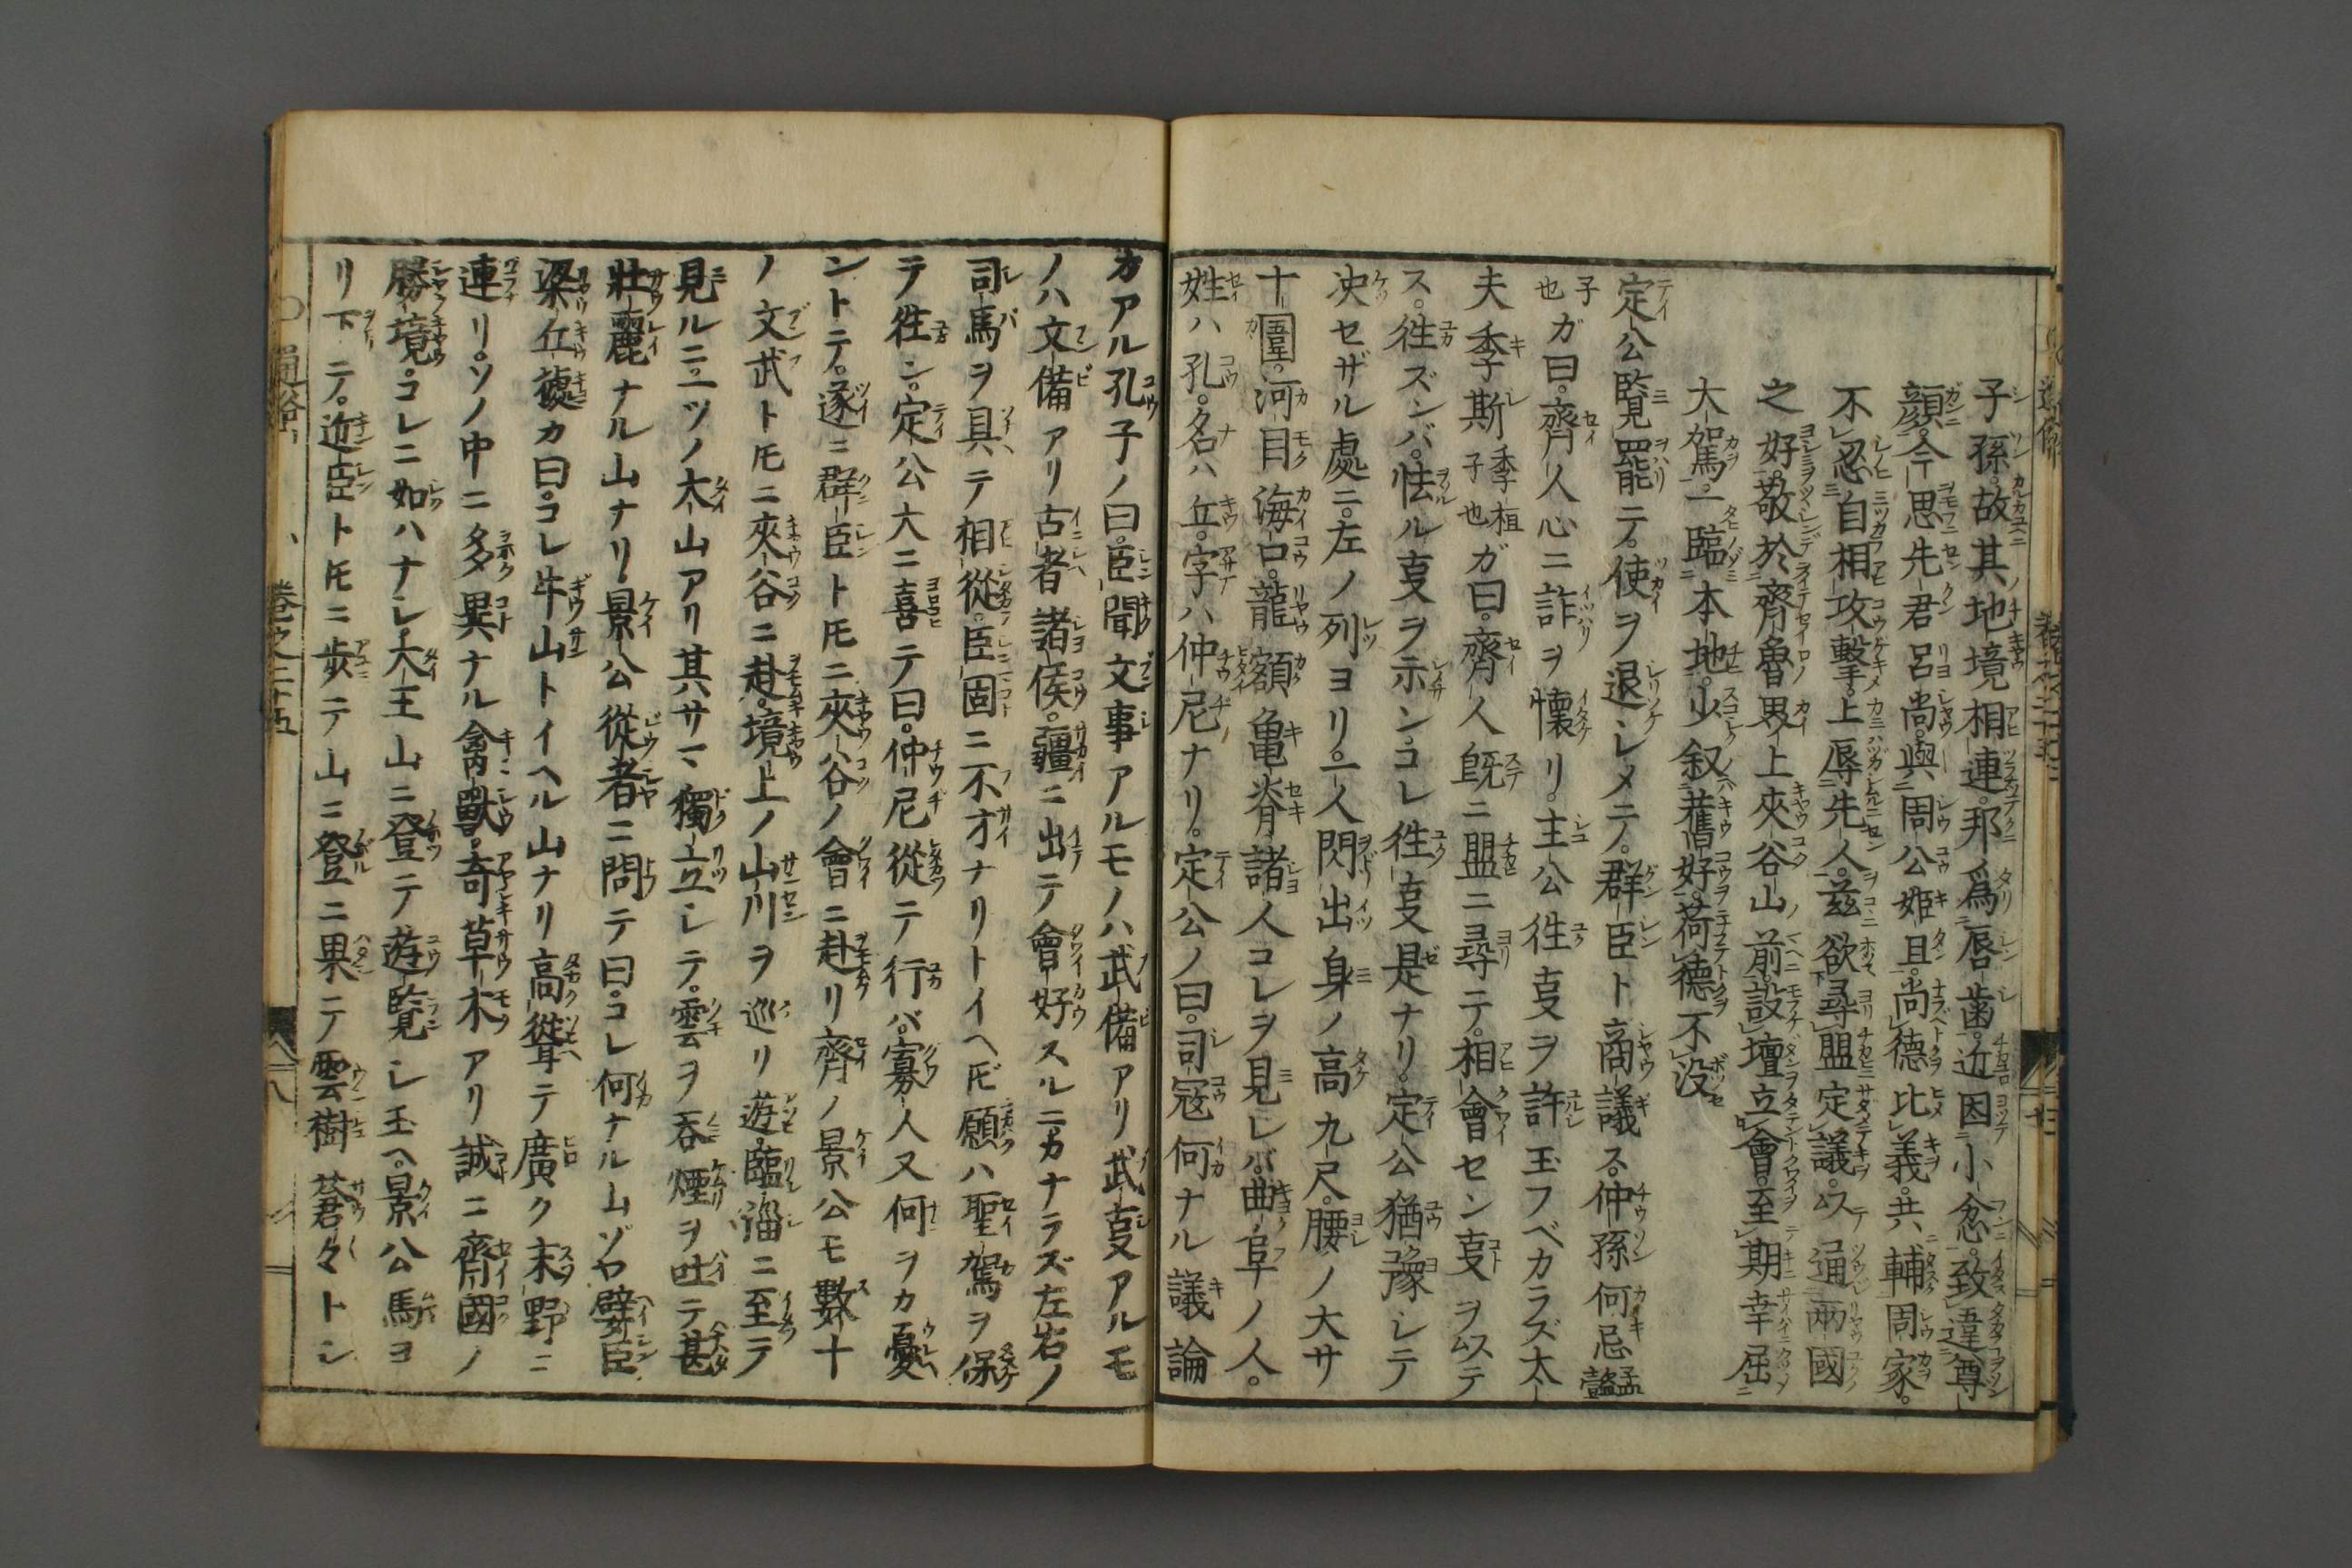 子孫。故其地境相連。邦爲唇歯。近因小忿。致違尊
顔。今思先君呂尚。與周公姫旦。尚德比義。共輔周家。
不忍自相攻撃。上辱先人。茲欲尋盟定議。以通兩國
之好。敬於齊魯界上夾谷山前。設壇立會。至期幸屈
大駕。一臨本地。少叙舊好。荷德不没
定公覧罷テ。使ヲ退シメニテ。群臣ト商議ス。仲孫何忌孟懿
子也ガ曰。齊人心ニ詐ヲ懷リ。主公往亊ヲ許玉フベカラズ太
夫季斯季桓子也ガ曰。齊人既ニ盟ニ尋テ。相會セン亊ヲ以テ
ス。往ズンバ。怯ル亊ヲ示ン。コレ往亊是ナリ。定公猶豫シテ
决セザル處ニ。左ノ列ヨリ。一人閃出身ノ高九尺。腰ノ大サ
十圍。河目海口。龍額亀脊。諸人コレヲ見レバ。曲阜ノ人。
姓ハ孔。名ハ丘。字ハ仲尼ナリ。定公ノ曰。司冦何ナル議論
カアル孔子ノ曰。臣聞文事アルモノハ武備アリ武亊アルモ
ノハ文備アリ古者諸侯。疆ニ出テ會好スルニカナラズ左右ノ
司馬ヲ具テ相從。臣固ニ不才ナリトイヘ𪜈願ハ聖駕ヲ保
テ徃ン。定公大ニ喜テ曰。仲尼從テ行バ。寡人又何ヲカ憂
ントテ。遂ニ群臣ト𪜈ニ夾谷ノ會ニ赴リ齊ノ景公モ數十
ノ文武ト𪜈ニ夾谷ニ赴。境上ノ山川ヲ巡リ遊臨淄ニ至テ
見ルニ。一ツノ太山アリ其サマ獨立シテ。雲ヲ吞煙ヲ吐テ甚
壯麗ナル山ナリ。景公從者ニ問テ曰。コレ何ナル山ゾヤ嬖臣
梁丘據カ曰。コレ牛山トイヘル山ナリ高聳テ廣ク末野ニ
連リ。ソノ中ニ多異ナル禽獸。奇草木アリ誠ニ齊國ノ
勝境。コレニ如ハナシ大王山ニ登テ遊覽シ玉ヘ。景公馬ヨ
リ下テ。近臣ト𪜈ニ歩テ山ニ登ニ果テ雲樹蒼々トシ
通俗
卷之二十五
八